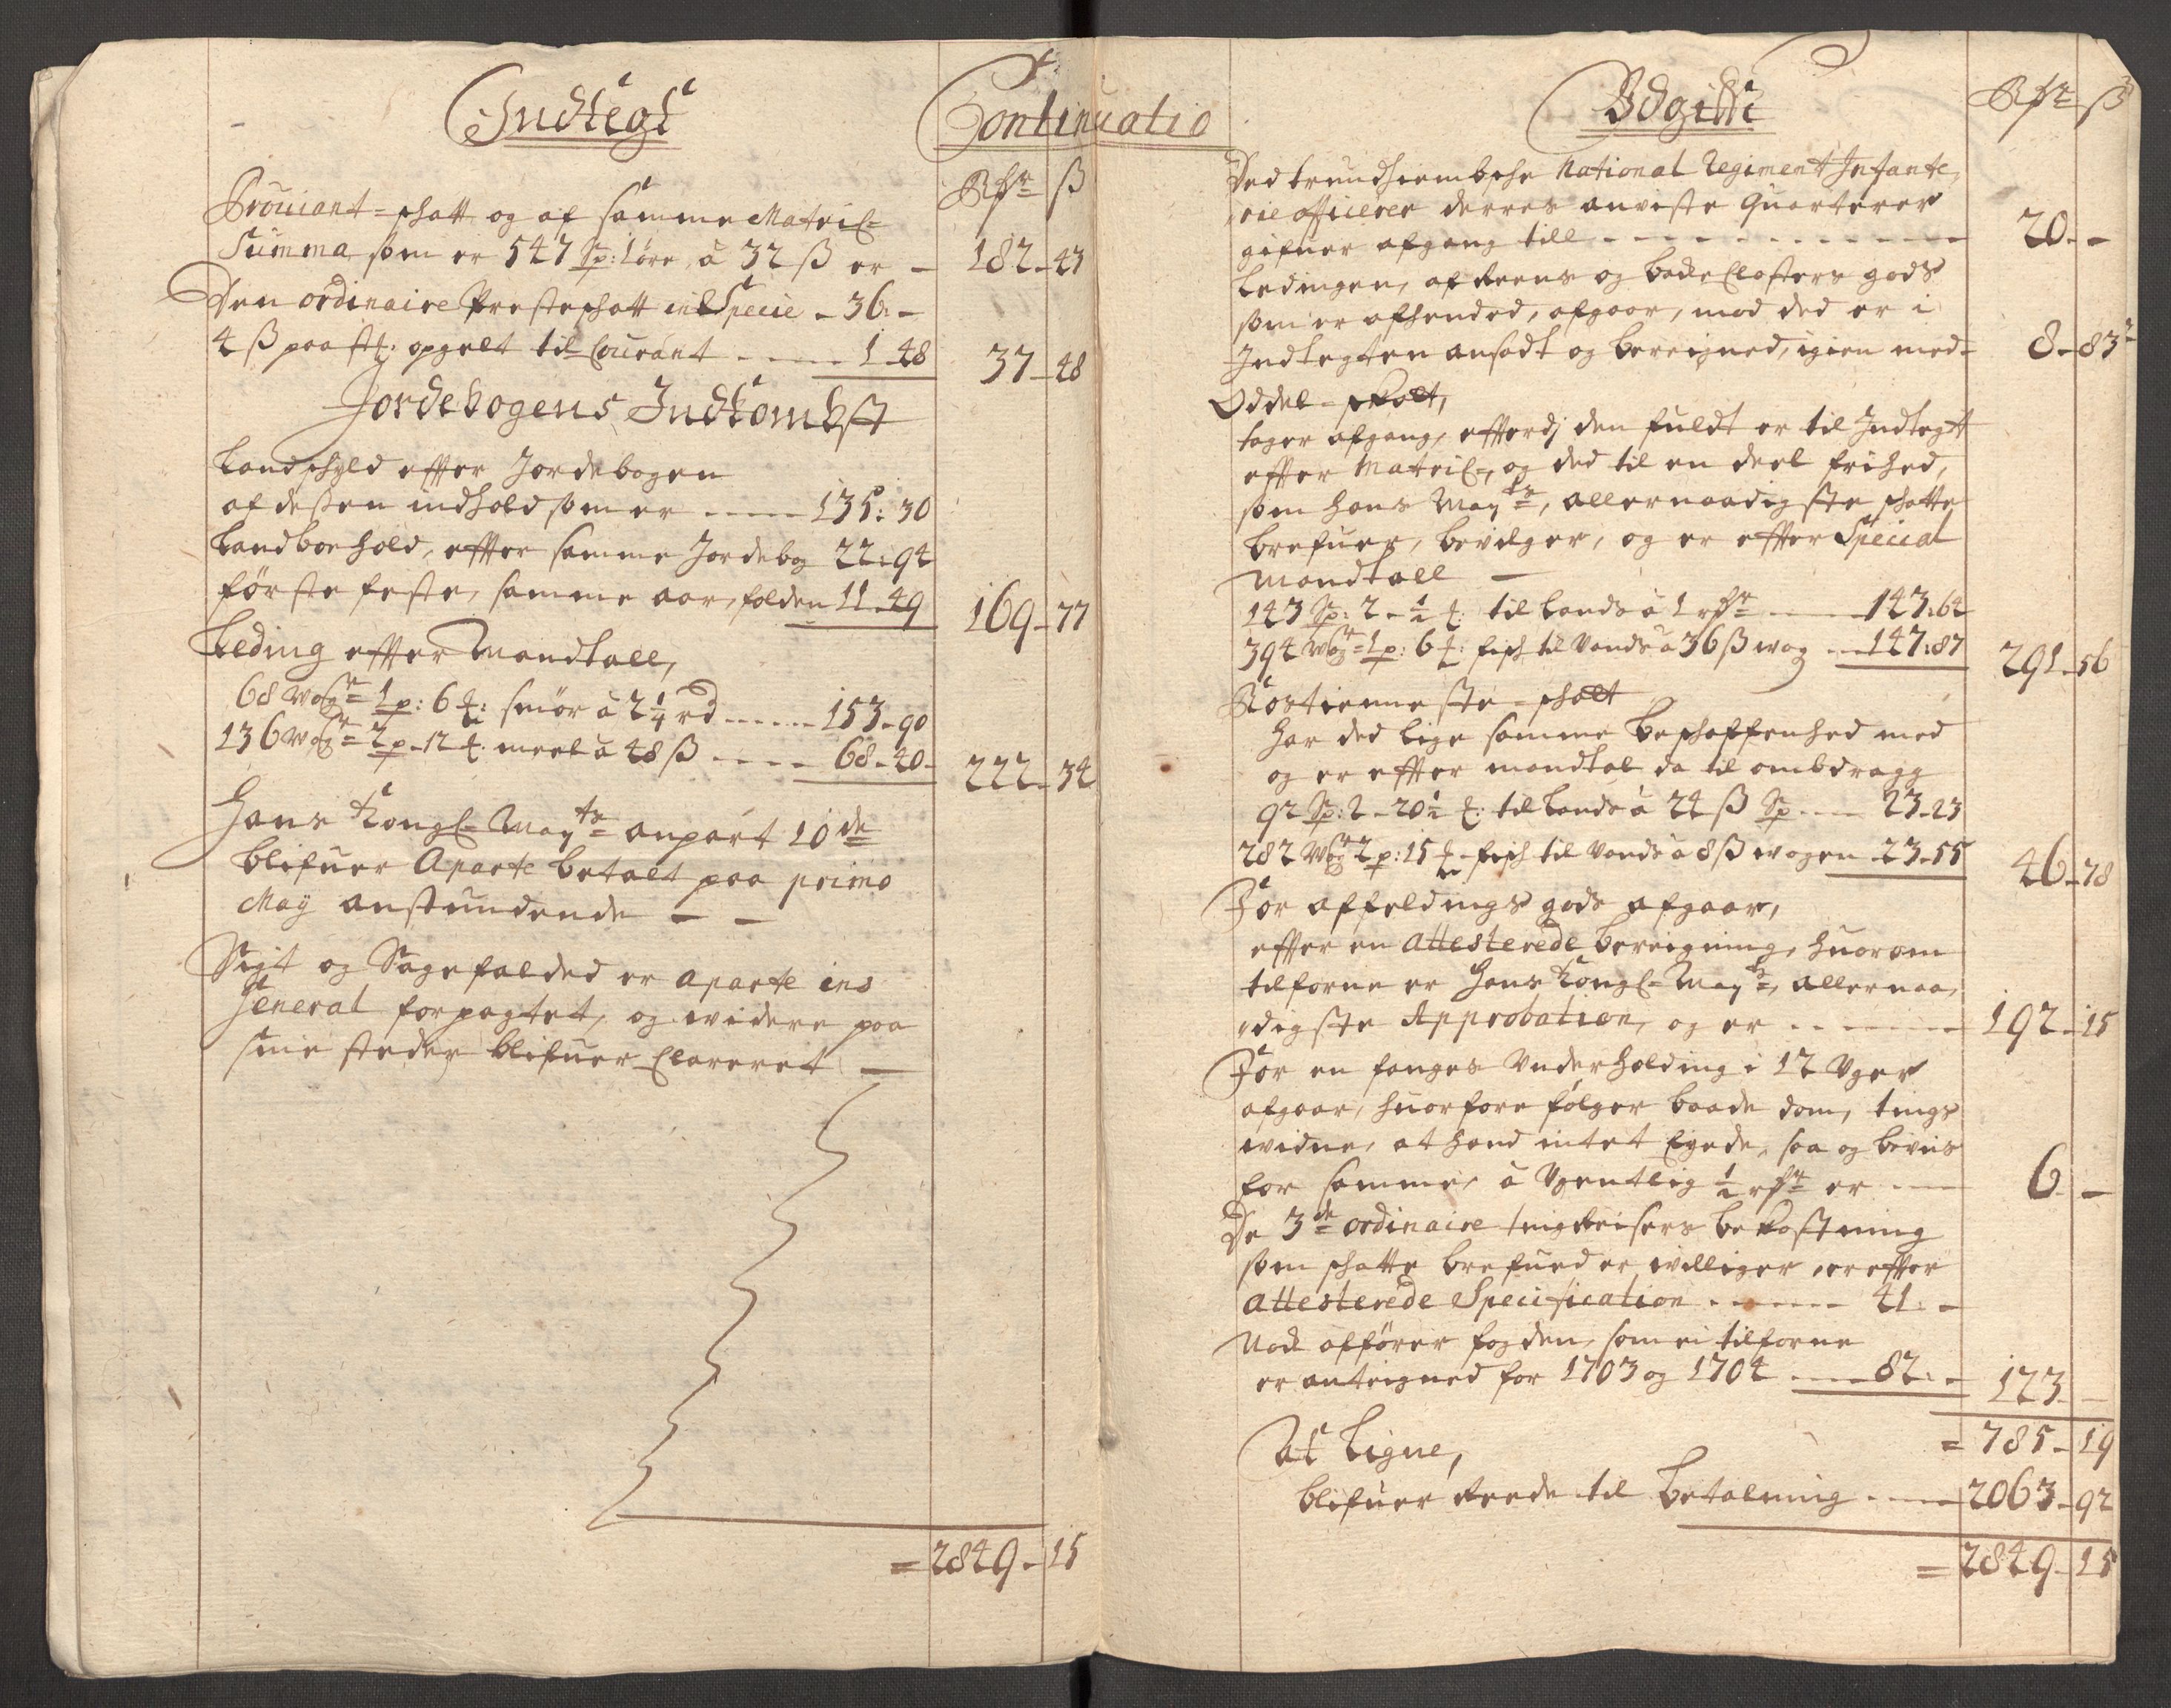 Indtegt
Continuatio
Rdr ß
Prouiant-schatt og af samme Matricl=
Summa som er 547 Sp: 1 öre, à 32 ß er – 182-43
Den ordinaire Presteschatt in Specie – 36: –
4 ß paa st: opgelt til Courant – 1-48
37-48
Jordebogens Indkombst
Landschyld effter Jordebogen
af desten indhold som er – 135: 30
Landboehold, effter samme Jordebog 22: 94
förste feste, samme aar, falden 11-49
169-77
Leding effter Mandtall,
68 wogr 1 p: 6 £: smör à 2 1/4 rd – 153-90
136 wogr 2 p-12 £. meel à 48 ß – 68-40-
222-34
Hans Kongl= Mayts anpart 10de
blifuer Aparte betalt paa primo
Maÿ anstundende – –
Sigt og Sagefalded er aparte ins
General forpagtet, og widere paa
sine steder blifuer Clareret –
= 2849-15
Udgifft
Rdr ß
Ded trundhiembsche National Regiment Infante,
,rie officerer derres anviste Quarterer
gifuer afgang till – 20. –
Ledingen, af Reens og bache Closters gods
som er afhended, afgaar, mod ded er i
Indtegten ansadt og bereigned, igien med – 8-83
Oddel-skatt,
tager afgang, effterdj den fuldt er til Indtegt
effter Matricl=, og ded til en deel frihed,
som hans Mayts, allernaadigste schatte
brefuer, bevilger, og er effter Special
Mandtall –
143 Sp: 2-1/2 £: til Lands à 1 rdr – 143:64
394 wogr 1 p: 6 £: fisch til Vands à 36 ß wog – 147:87
291-56
Rostienneste-schatt
har ded lige samme beschaffenhed med
og er effter mandtal da til ombdragg
92 Sp: 2-20 1/2 £: til Lands à 24 ß Sp – 23-23
282 wogr 2 p: 15 £ fisch til Vands à 8 ß wogen 23-55
46-78
For affeldings gods afgaar,
effter en attesterede bereigning, huorom
tilforne er Hans Kongl= Mayts, allernaa,
,digste Approbation, og er – 192-15
For en fanges Vnderholding i 12 Vger
afgaar, huorfore fölger baade dom, tings
widne, at hand intet Eyede, saa og beviis
for samme, à Vgentlig 1/2 rdr er – 6. –
De 3de ordinaire tingreisers bekostning
som schatte brefued er williger, er effter
attesterede Specification – 41: –
Nock afförer fogden, som ei tilforne
er anteigned for 1703 og 1704 – 82: –
123 –
= 785-19
At Ligne,
blifuer Reede til betalning – 2063-92
= 2849-15